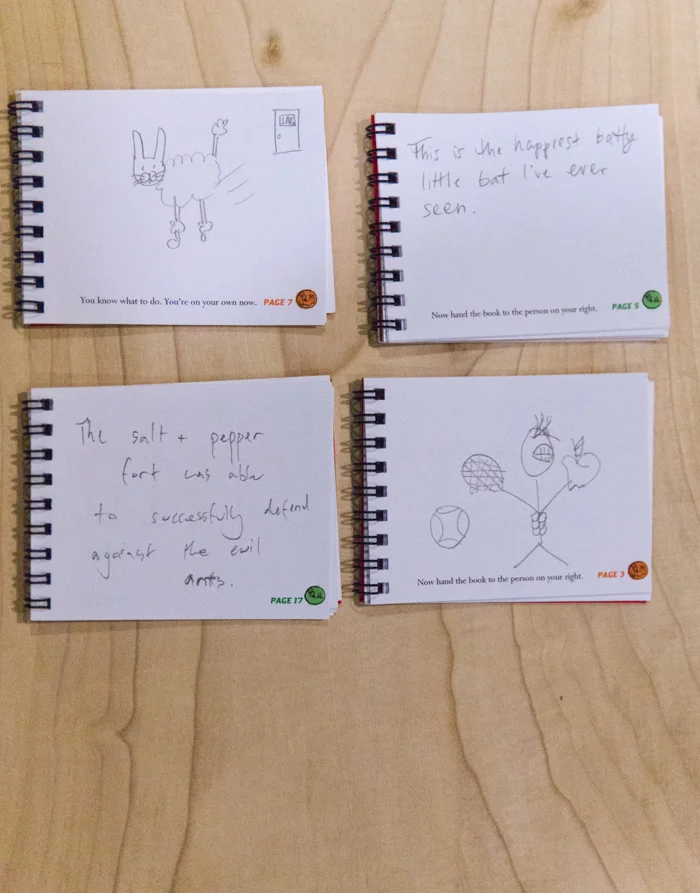 LAB
You know what to do. You're on your own now. PAGE 7
This is the happiest batty
little bat I've ever
seen.
Now hand the book to the person on your right. PAGE 5
The salt + pepper
fort was able
to successfully defend
against the evil
ants.
PAGE 17
Now hand the book to the person on your right. PAGE 3